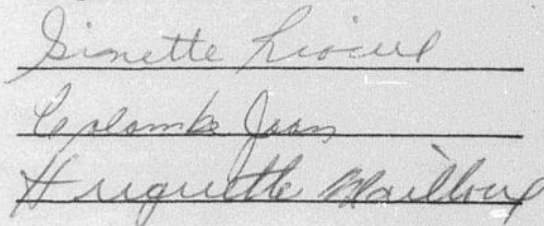 Ginette Lioul
Colombe Jean
Huguette Mailloux